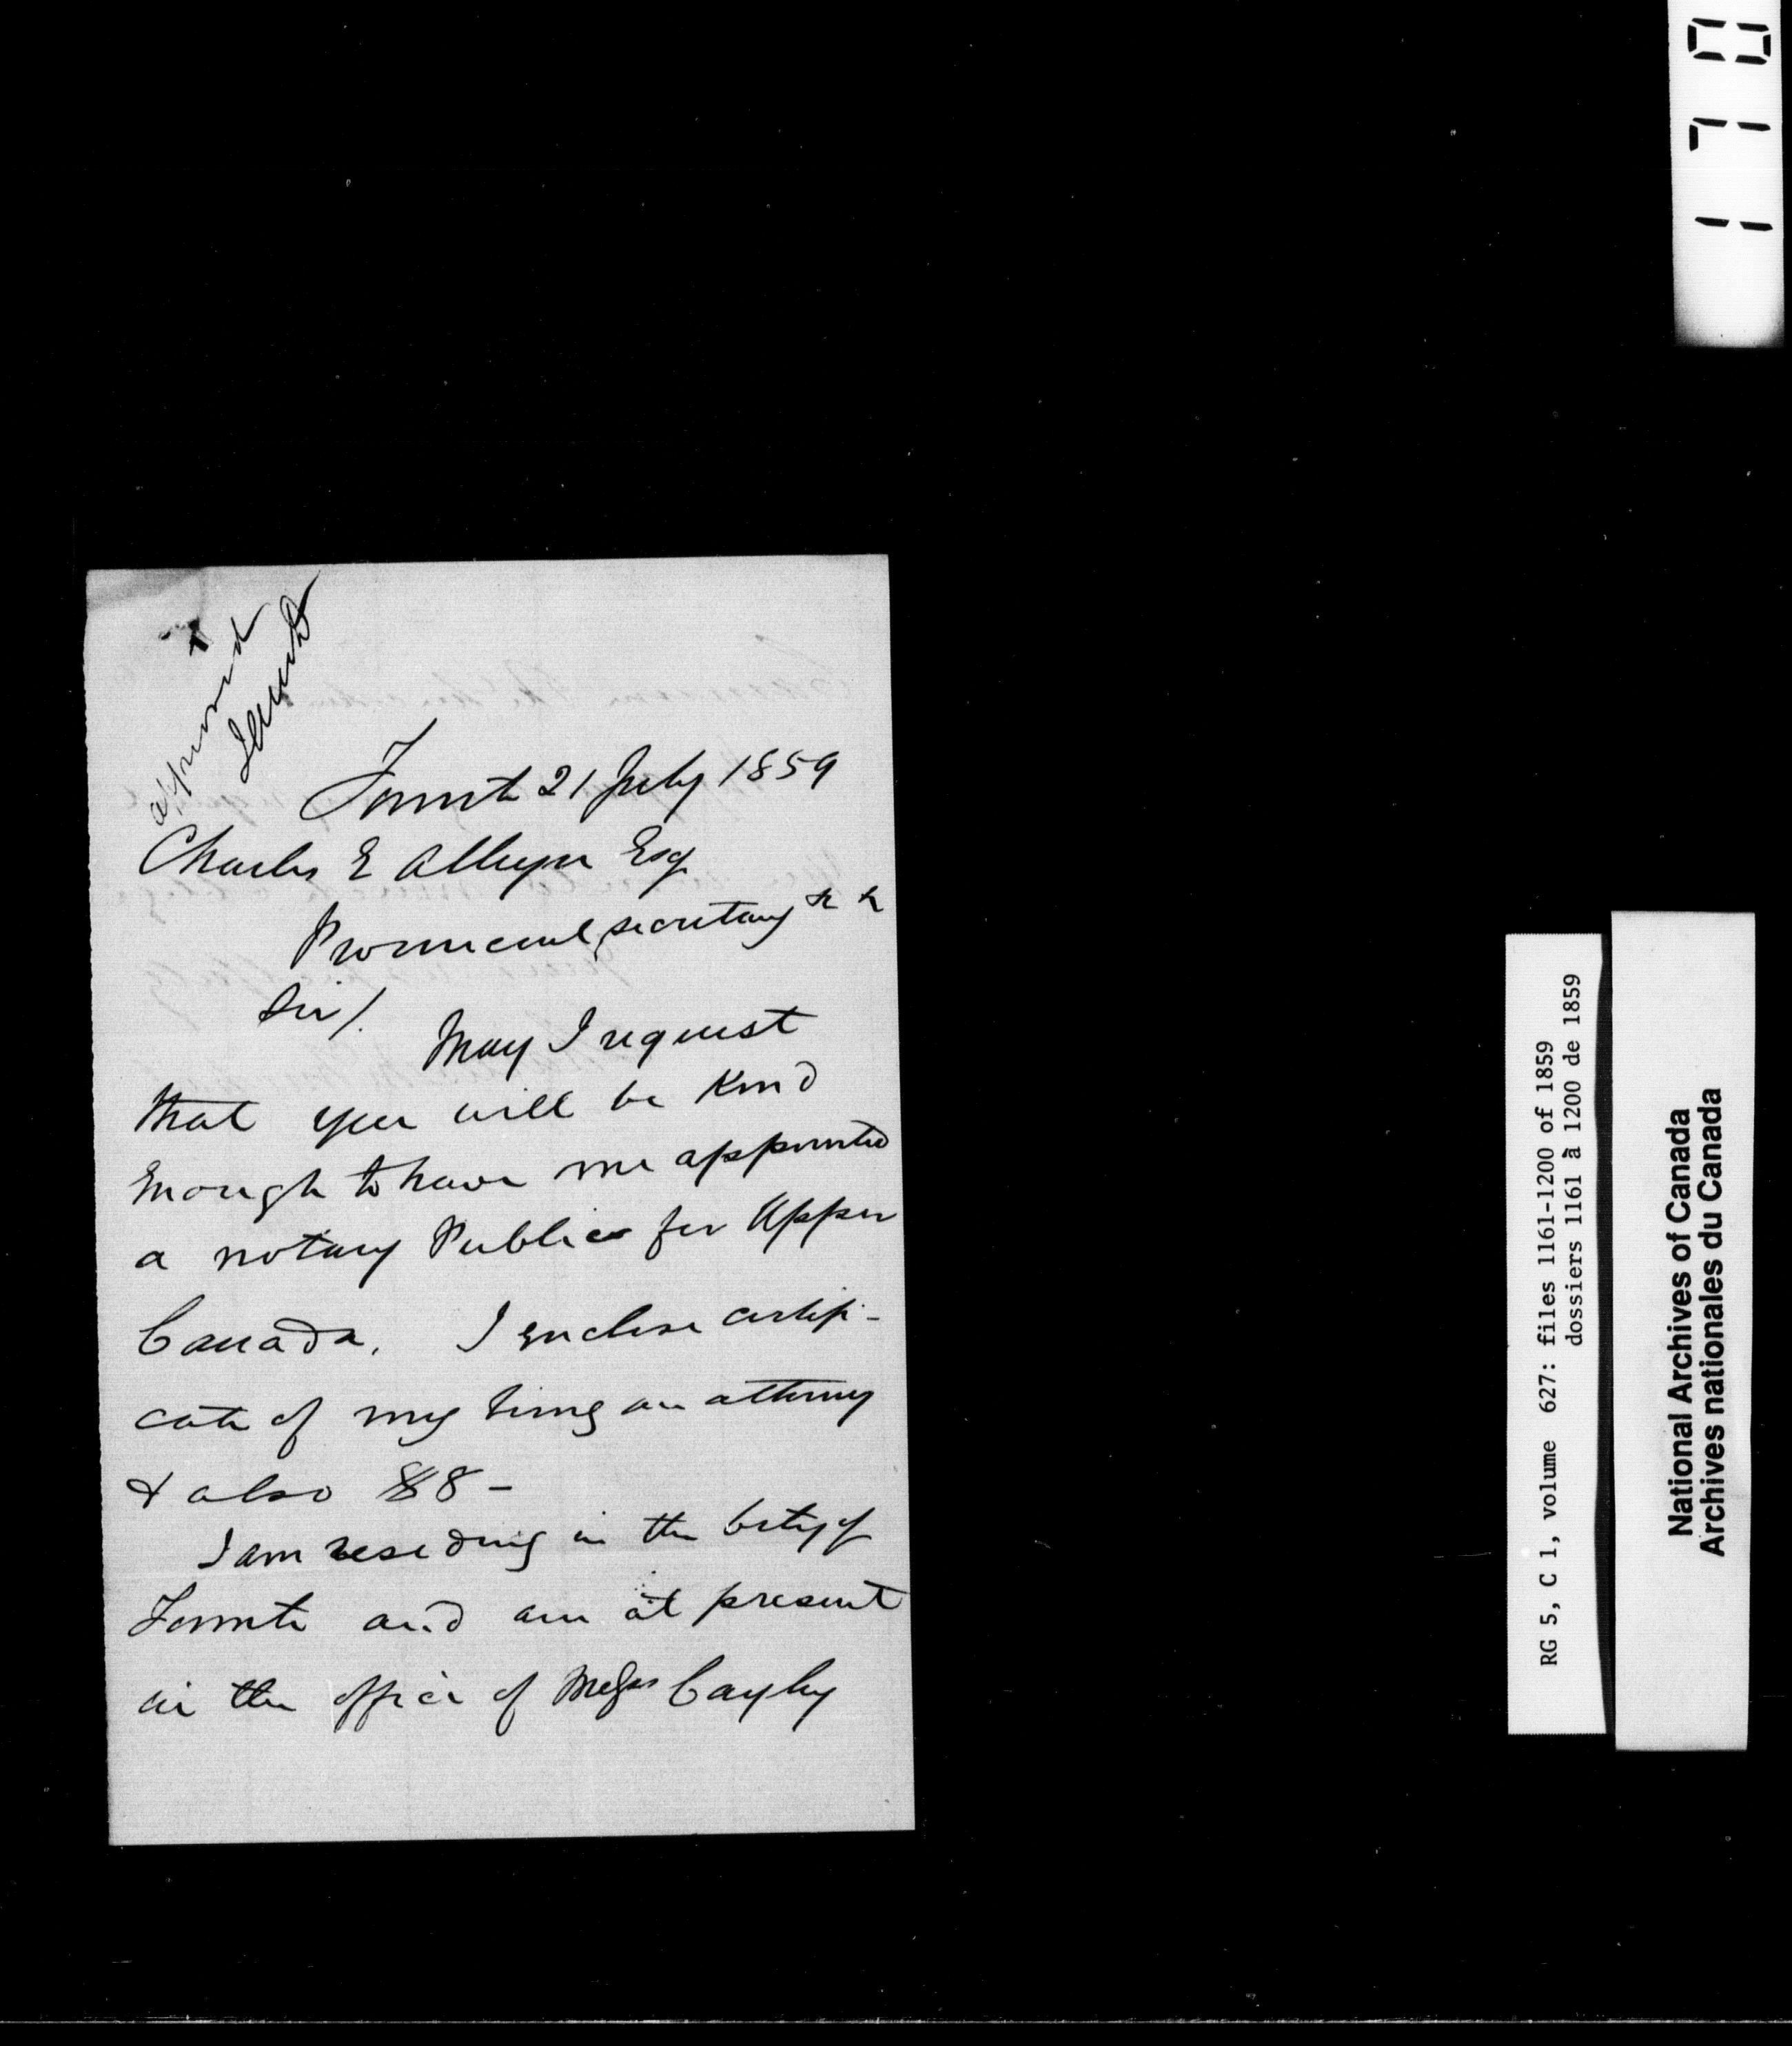 approved
Toronto 21 July 1859
Charles E Alleyn Esq
Provincial Secretary &c &c
Sir/.
May I request
that you will be Kind
Enough to have me appointed
a notary Public for Upper
Canada. I enclose certifi-
cate of my being an attorney
& also $8-
I am residing in the City of
Toronto and am at present
in the office of Messrs Cayley
1170
RG 5, C 1, volume 627: files 1161-1200 of 1859
dossiers 1161 à 1200 de 1859
National Archives of Canada
Archives nationales du Canada